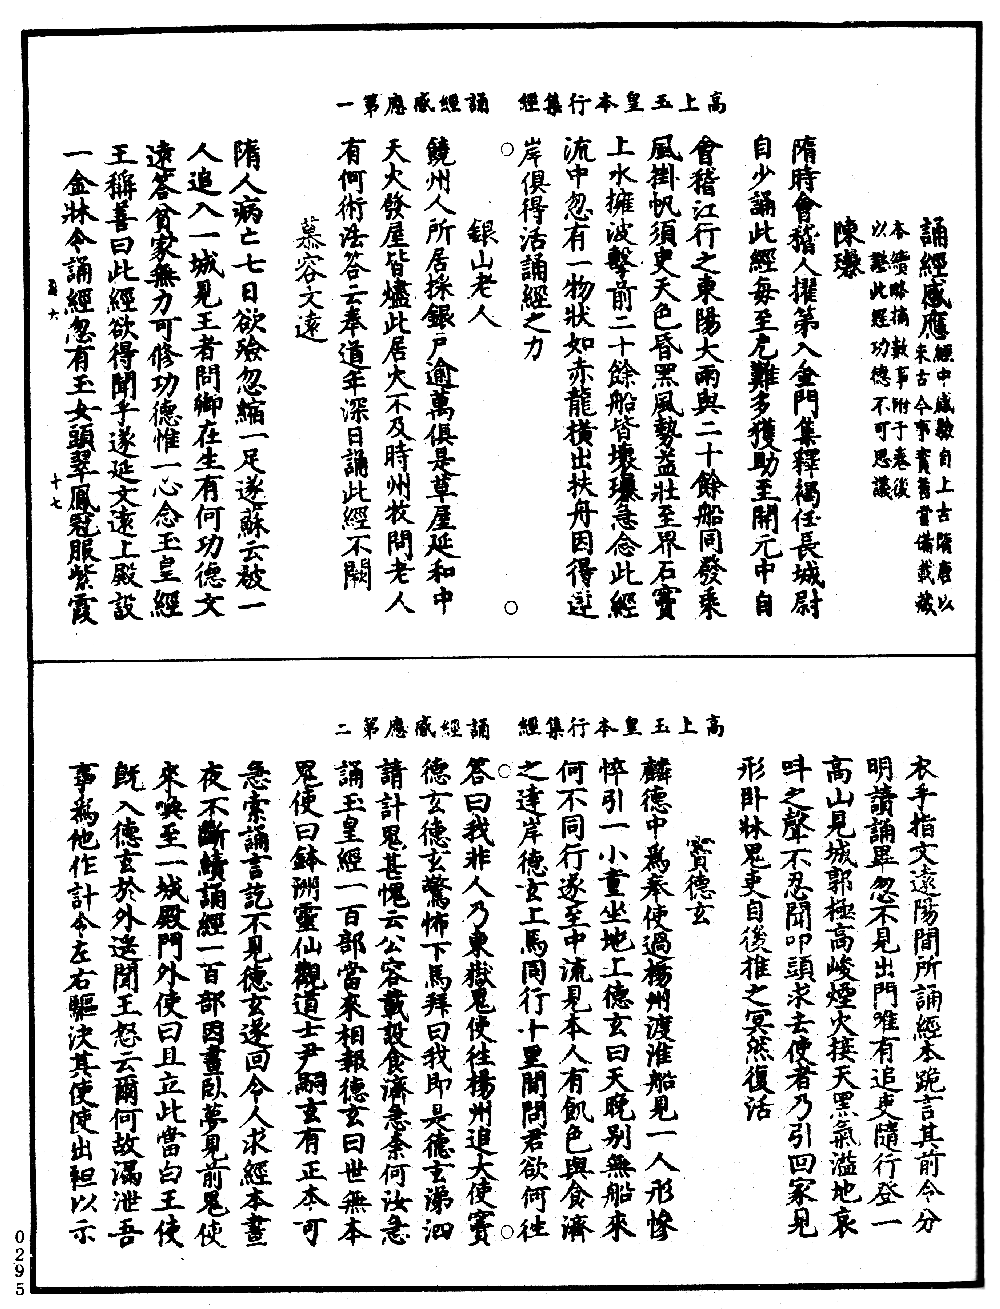 高上玉皇本行集經　誦經感應第一
誦經感應經中感驗自上古隋唐以
來古今事實舊嘗備載藏
本續略摘數事附于卷後
以鑒此經功德不可思議
陳瓌
隋時會稽人擢第入金門集釋褐任長城尉
自少誦此經每至危難多獲助至開元中自
會稽江行之東陽大雨與二十餘船同發乘
風掛帆須臾天色昏黑風勢益壯至界石竇
上水擁波擊前二十餘船皆壞瓌急念此經
流中忽有一物狀如赤龍橫出扶舟因得達
岸俱得活誦經之力
銀山老人
饒州人所居採銀戶逾萬俱是草屋延和中
天火發屋皆燼此居火不及時州牧問老人
有何術法答云奉道年深日誦此經不闕
慕容文遠
隋人病亡七日欲殮忽縮一足遂蘇云被一
人追入一城見王者問卿在生有何功德文
遠答貧家無力可修功德惟一心念玉皇經
王稱善曰此經欲得聞乎遂延文遠上殿設
一金牀令誦經忽有玉女頭翠鳳冠服紫霞
六
十七
高上玉皇本行集經　誦經感應第二
衣手指文遠陽間所誦經本跪言其前令分
明讀誦畢忽不見出門唯有追吏隨行登一
高山見城郭極高峻煙火接天黑氣溢地哀
叫之聲不忍聞叩頭求去使者乃引回家見
形卧牀鬼吏自後推之冥然復活
竇德玄
麟德中為奉使過楊州渡淮船見一人形慘
悴引一小童坐地上德玄曰天晚別無船來
何不同行遂至中流見本人有飢色與食濟
之達岸德玄上馬同行十里間問君欲何往
答曰我非人乃東嶽鬼使往楊州追大使竇
德玄德玄驚怖下馬拜曰我即是德玄涕泗
請計鬼甚愧云公容載設食濟急奈何汝急
誦玉皇經一百部當來相報德玄曰世無本
鬼使曰鉢洲靈仙觀道士尹嗣玄有正本可
急索誦言訖不見德玄遂回令人求經本晝
夜不斷續誦經一百部因晝臥夢見前鬼使
來喚至一城殿門外使曰且立此當白王使
既入德玄於外遙聞王怒云爾何故漏泄吾
事為他作計令左右驅決其使使出袒以示
0295